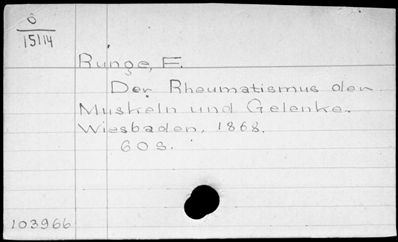 O
15114
Runge, F.
Der Rheumatismus der
Muskeln und Gelenke.
Wiesbaden, 1868.
60 S.
103966